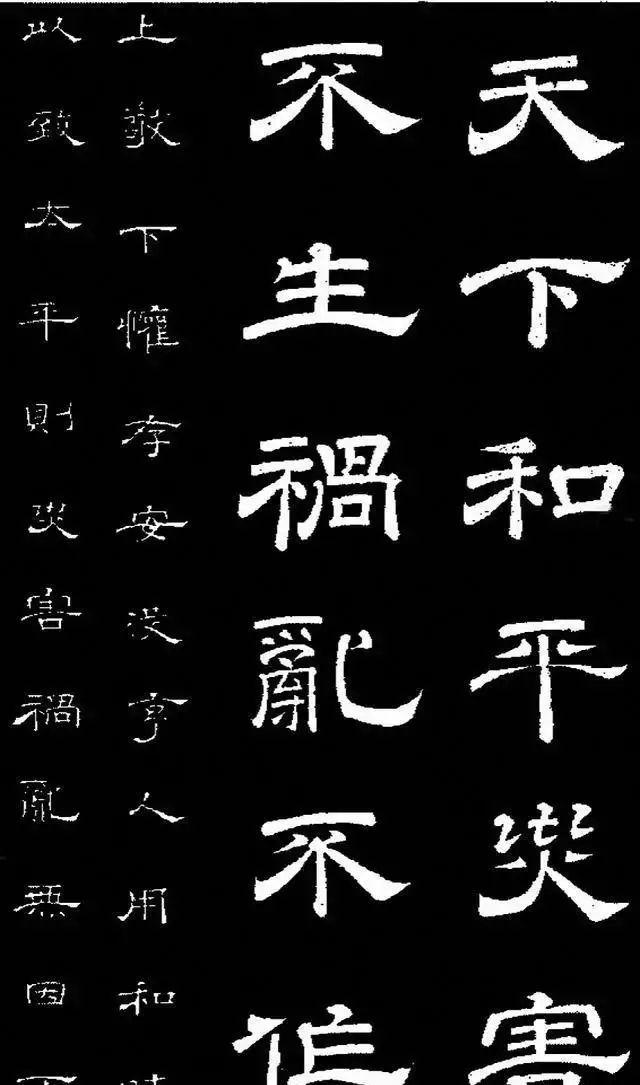 天下和平災害
不生禍亂不作
上敬下懽存安没享人用和
以致太平則災害禍亂無因